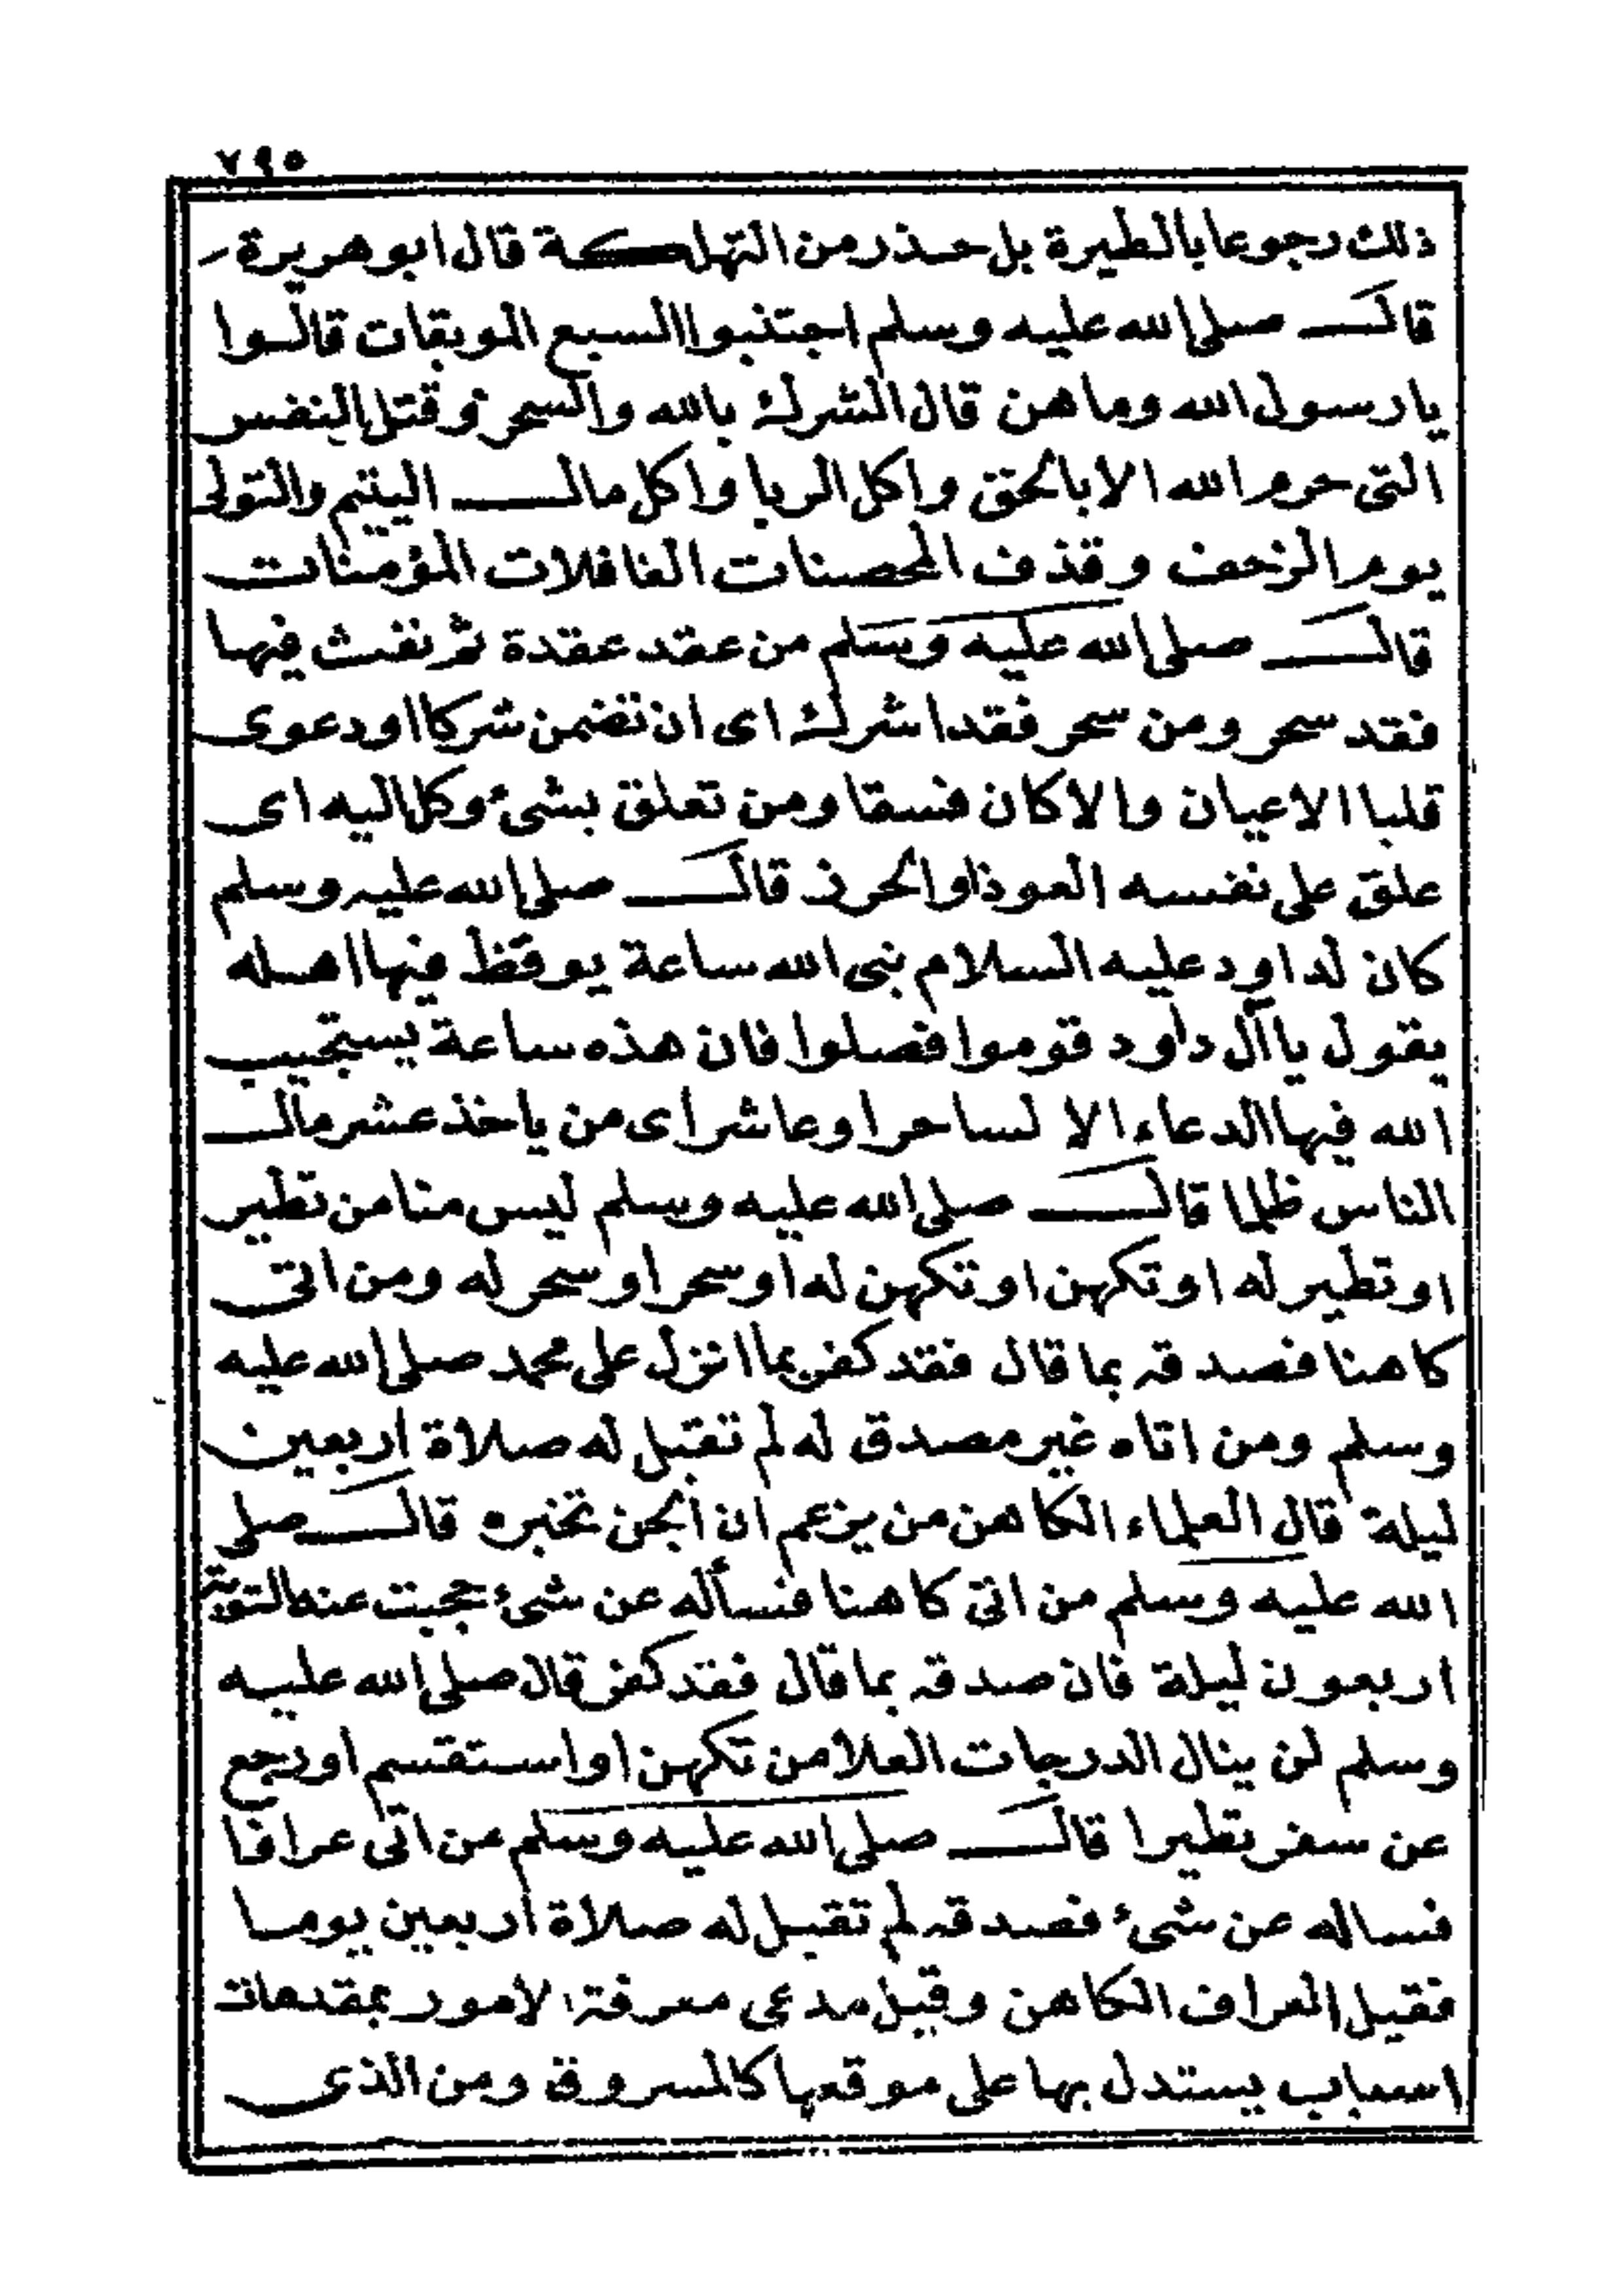 ٧٩٥
ذلك رجوعا بالطيرة بل حذر من التهلكة قال ابو هريرة
قال صلى الله عليه وسلم اجتنبوا السبع الموبقات قالوا
يا رسول الله وما هن قال الشرك بالله والسحر وقتل النفس
التى حرم الله الا بالحق واكل الربا واكل مال اليتيم والتولى
يوم الزحف وقذف المحصنات الغافلات المؤمنات
قال صلى الله عليه وسلم من عقد عقدة ثم نفث فيها
فقد سحر ومن سحر فقد اشرك اى ان تضمن شركا او دعوى
قلبا الاعيان والا كان فسقا ومن تعلق بشئ وكل اليه اى
علق على نفسه العوذ او الحرز قال صلى الله عليه وسلم
كان لداود عليه السلام نبى الله ساعة يوقظ فيها اهله
يقول يا آل داود قوموا فصلوا فان هذه ساعة يستجيب
الله فيها الدعاء الا لساحر او عاشر اى من ياخذ عشر مال
الناس ظلما قال صلى الله عليه وسلم ليس منا من تطير
او تطير له او تكهن او تكهن له او سحر او سحر له ومن اتى
كاهنا فصدقه بما قال فقد كفر بما انزل على محمد صلى الله عليه
وسلم ومن اتاه غير مصدق له لم تقبل له صلاة اربعين
ليلة قال العلماء الكاهن من يزعم ان الجن تخبره قال صلى
الله عليه وسلم من اتى كاهنا فسأله عن شئ حجبت عنه التوبة
اربعون ليلة فان صدقه بما قال فقد كفر قال صلى الله عليه
وسلم لن ينال الدرجات العلا من تكهن او استقسم او رجع
عن سفر تطيرا قال صلى الله عليه وسلم من اتى عرافا
فساله عن شئ فصدقه لم تقبل له صلاة اربعين يوما
فقيل العراف الكاهن وقيل مدعى معرفة الامور بمقدمات
اسباب يستدل بها على موقعها كالمسروق ومن الذى